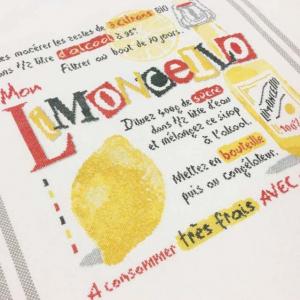 les macérer les zestes de 7 citrons BIO
dans 1/2 litre d'alcool à 95°.
Filtrer au bout de 10 jours.
Mon
LIMONCELLO
Diluez 500g de sucre
dans 1/2 litre d'eau
et mélangez ce sirop
à l'alcool.
LIMONCELLO
100%
Mettez en bouteille
puis au congélateur.
A consommer très frais AVEC